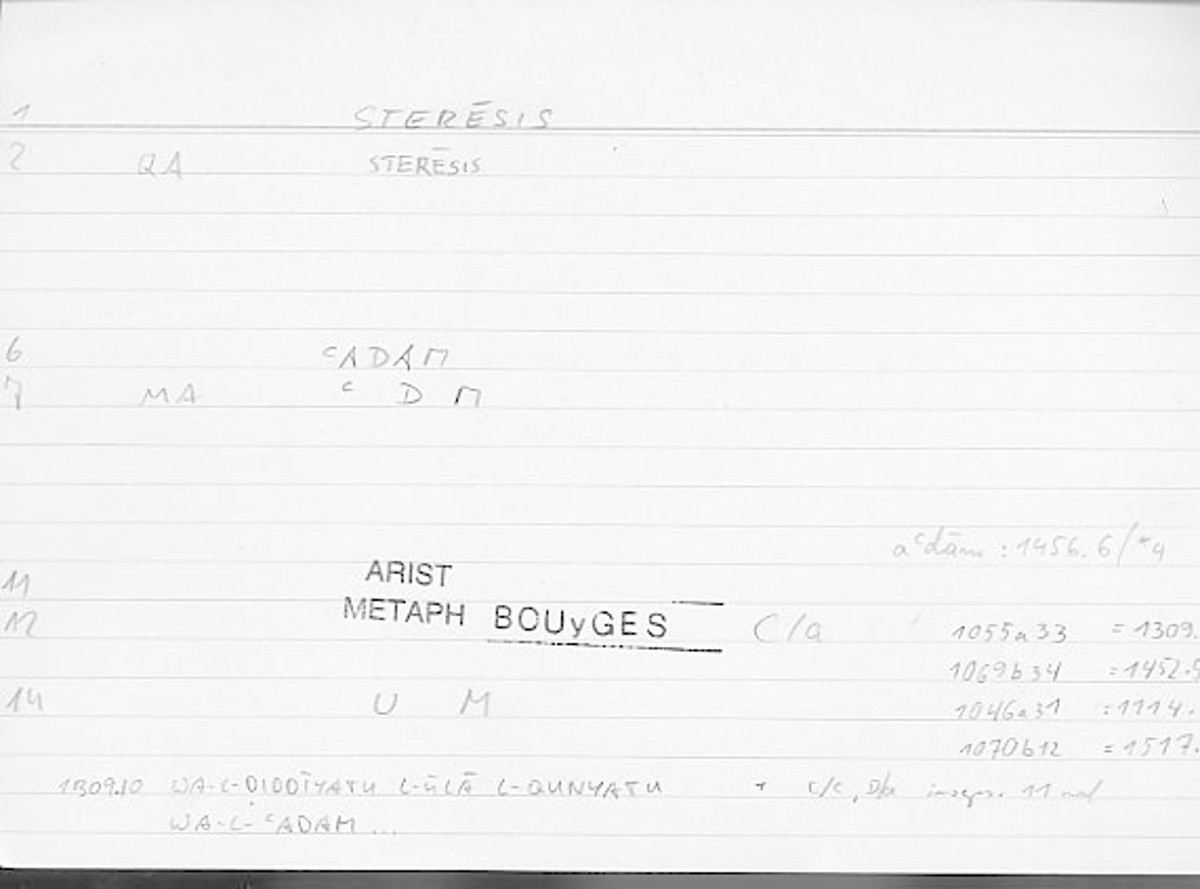 1 STERĒSIS
2 QA STERĒSIS
6 ᶜADAM
7 MA ᶜ D M
aᶜdām : 1456.6/*4
11 ARIST
12 METAPH BOUyGES C/a 1055a33 = 1309.
1069b34 = 1452.9
14 U M 1046a31 : 1114.
1070b12 = 1517.
1309.10 WA-L-ḌIDDĪYATU L-ŪLĀ L-QUNYATU + C/c, D/a insges. 11 mal
WA-L-ᶜADAM ...